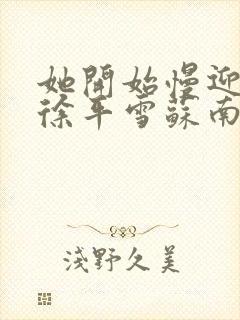 她開始慢迎
徐平雪蘇南
淺野久美